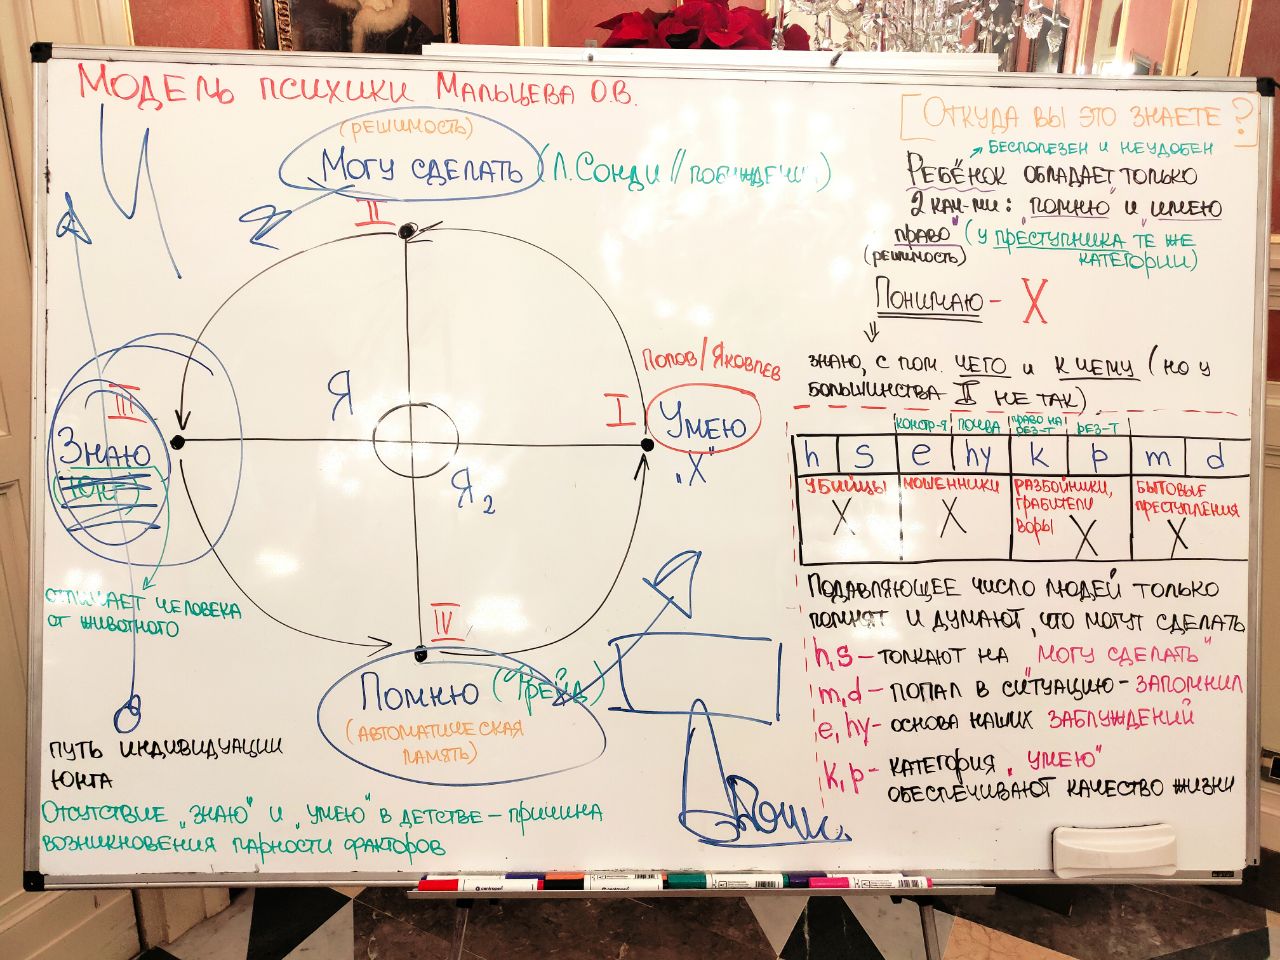 Модель психики Мальцева О.В.
(решимость)
Могу сделать (Л. Сонди // побуждения)
II
Я
Я2
I
Попов/Яковлев
Умею
„X"
III
Знаю
(Юнг)
отличает человека
от животного
IV
Помню (Фрейд)
(автоматическая
память)
путь индивидуации
Юнга
Отсутствие „знаю" и „умею" в детстве – причина
возникновения парности факторов
[Откуда вы это знаете?
бесполезен и неудобен
Ребёнок обладает только
2 кач-ми: „помню" и „имею
право" (у преступника те же
категории)
(решимость)
Понимаю – X
знаю, с пом. чего и к чему (но у
большинства II не так)
констр-я почва право на рез-т рез-т
h s e hy k p m d
убийцы мошенники разбойники, грабители воры бытовые преступления
X X X X
Подавляющее число людей только
помнят и думают, что могут сделать
h,s – толкают на „могу сделать"
m,d – попал в ситуацию – запомнил
e,hy – основа наших заблуждений
k,p – категория „умею"
обеспечивают качество жизни
centropen